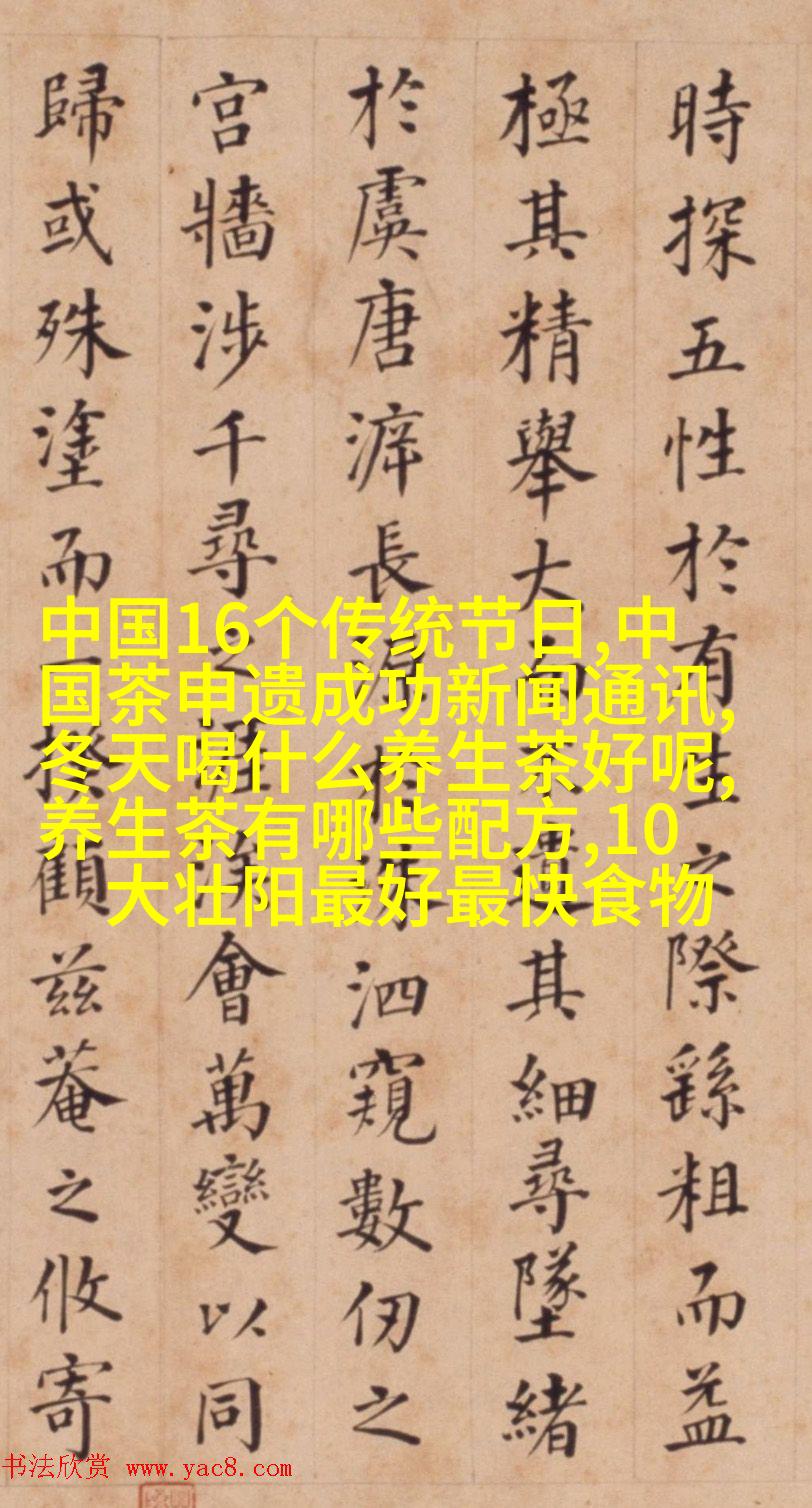 時探五性於有生之際繇粗而益
極其精舉大而不遺其細尋墜緒
於虞唐長源於洙泗窺數仞之
宮牆涉千尋之涯涘會萬變以同
歸或殊塗而一揆顧兹菴之攸寄
中国16个传统节日,中
国茶申遗成功新闻通讯,
冬天喝什么养生茶好呢,
养生茶有哪些配方,10
大壮阳最好最快食物
书法欣赏 www.yac8.com